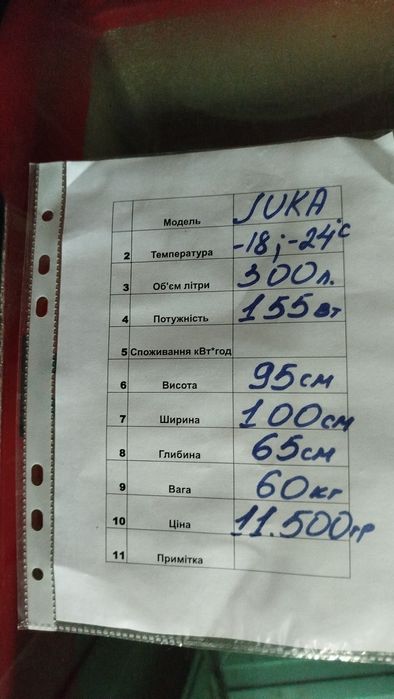 Модель JUKA
2 Температура -18; -24°C
3 Об'єм літри 300л.
4 Потужність 155Вт
5 Споживання кВт*год
6 Висота 95см
7 Ширина 100см
8 Глибина 65см
9 Вага 60кг
10 Ціна 11.500гр
11 Примітка